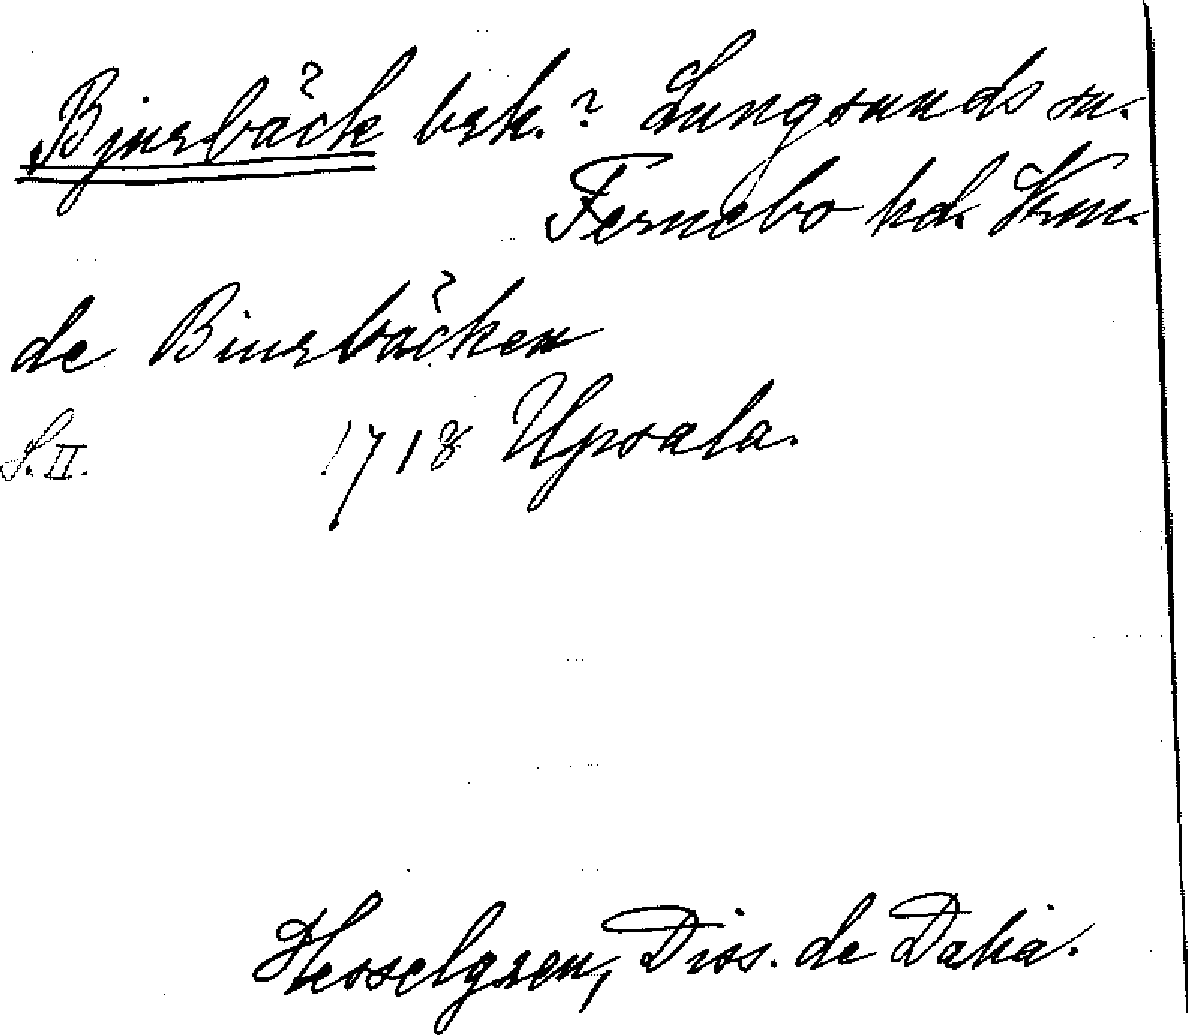 Bjurbäck brk.? Lungsunds sn.
Fernebo hd. Vrm.
de Biurbäcken
S.II. 1718 Upsala.
Hesselgren, Diss. de Dalia.